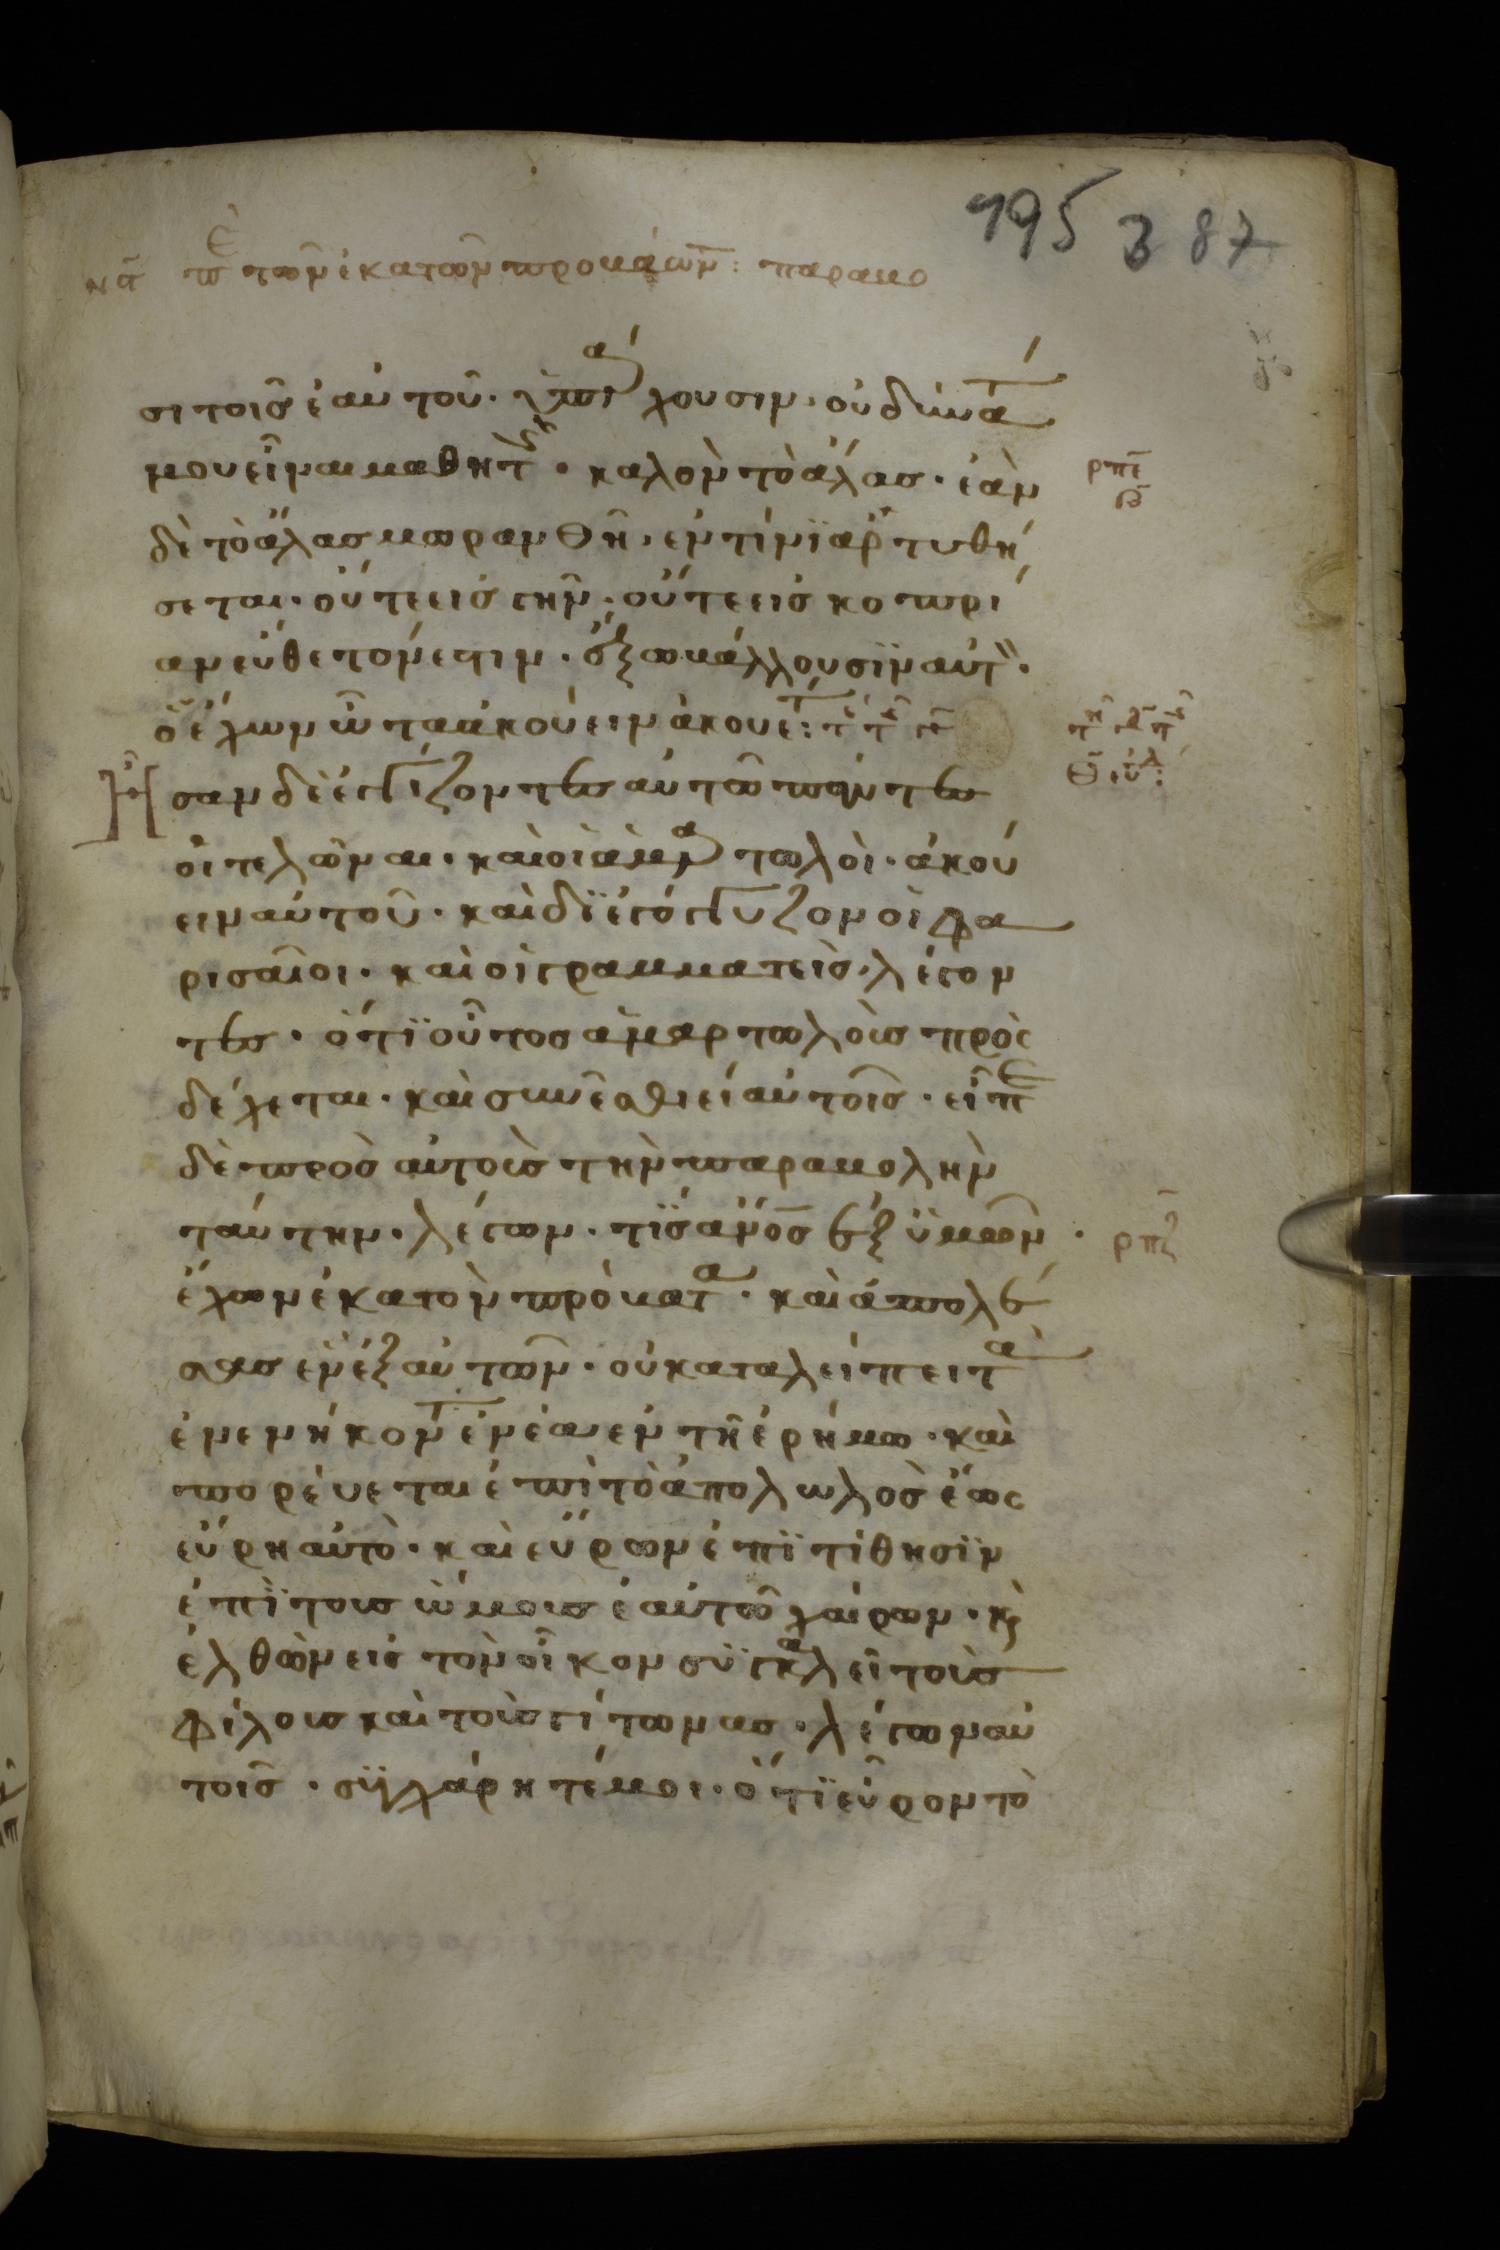 195 3 87
να περὶ τῶν ἑκατῶν προβάτων: παραβο
σι τοῖς ἑαυτοῦ. ὑπάρχουσιν. οὐ δύναται
μου εἶναι μαθητής. καλὸν τὸ ἅλας. ἐὰν
δὲ τὸ ἅλας μωρανθῆ. ἐν τίνϊ ἀρτυθή
σεται. οὔτε εἰς γῆν. οὔτε εἰς κοπρί
αν εὔθετόν ἐστιν. ἔξω βάλλουσϊν αὐτὸ.
ὁ ἔχων ὦτα ἀκούειν ἀκουέτω:
Ἦσαν δὲ ἐγγίζοντες αὐτῶ πάντες
οἱ τελῶναι. καὶ οἱ ἁμαρτωλοὶ. ἀκού
ειν αὐτοῦ. καὶ δϊεγόγγυζον οἱ φα
ρισαῖοι. καὶ οἱ γραμματεῖς. λέγον
τες. ὅτϊ οὗτος ἁμαρτωλοὺς προς
δέχεται. καὶ συνεσθίει αὐτοῖς. εἶπε
δὲ πρὸς αὐτοὺς τὴν παραβολὴν
ταύτην. λέγων. τίς ἄνος ἐξ ὑμῶν
ἔχων ἑκατὸν πρόβατα. καὶ ἀπολέ
σας ἓν ἐξ αὐτῶν. οὐ καταλείπει τὰ
ἐνενήκοντἐννέα ἐν τῆ ἐρήμω. καὶ
πορεύεται ἐπὶ τὸ ἀπολωλὸς ἕως
εὕρη αὐτὸ. καὶ εὑρων ἐπϊτίθησϊν
ἐπῒ τοὺς ὤμους ἑαυτῶ χαίρων. κ
ἐλθὼν εἰς τὸν οἶκον συγκαλεῖ τοὺς
φίλους καὶ τοὺς γίτωνας. λέγων αὐ
τοῖς. συγχάρητέ μοι. ὅτϊ εὗρον τὸ
ρπε
ρπζ